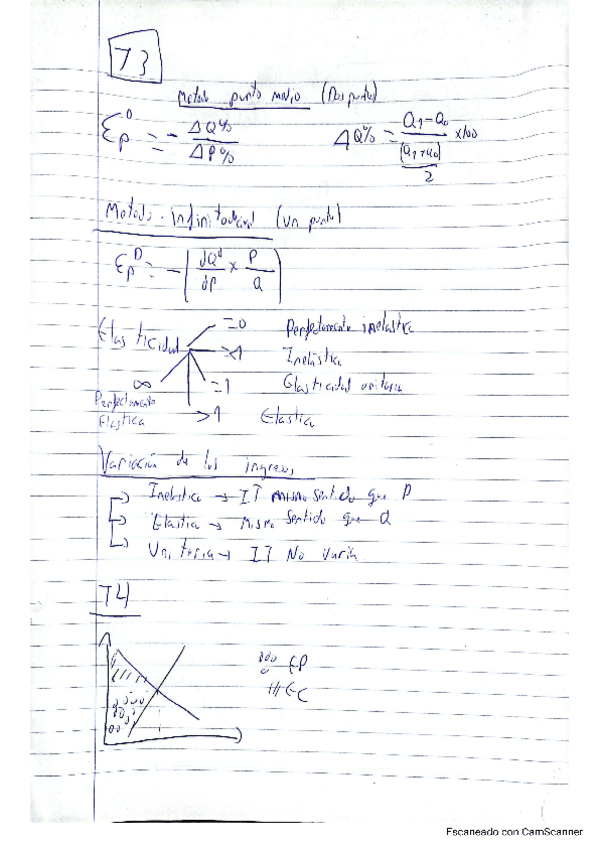 T3
Metodo punto medio (Dos puntos)
E_P^D = - ΔQ% / ΔP%
ΔQ% = (Q1 - Q0) / ((Q1 + Q0) / 2) x100
Metodo infinitesimal (un punto)
E_P^D = - [dQ^d / dP x P / Q]
Elasticidad
=0 Perfectamente inelastica
<1 Inelástica
=1 Elasticidad unitaria
>1 Elastica
∞
Perfectamente
Elastica
Variación de los ingresos
Inelastica → IT mismo sentido que P
Elastica → Mismo sentido que Q
Unitaria → IT No varia
T4
EP
EC
Escaneado con CamScanner